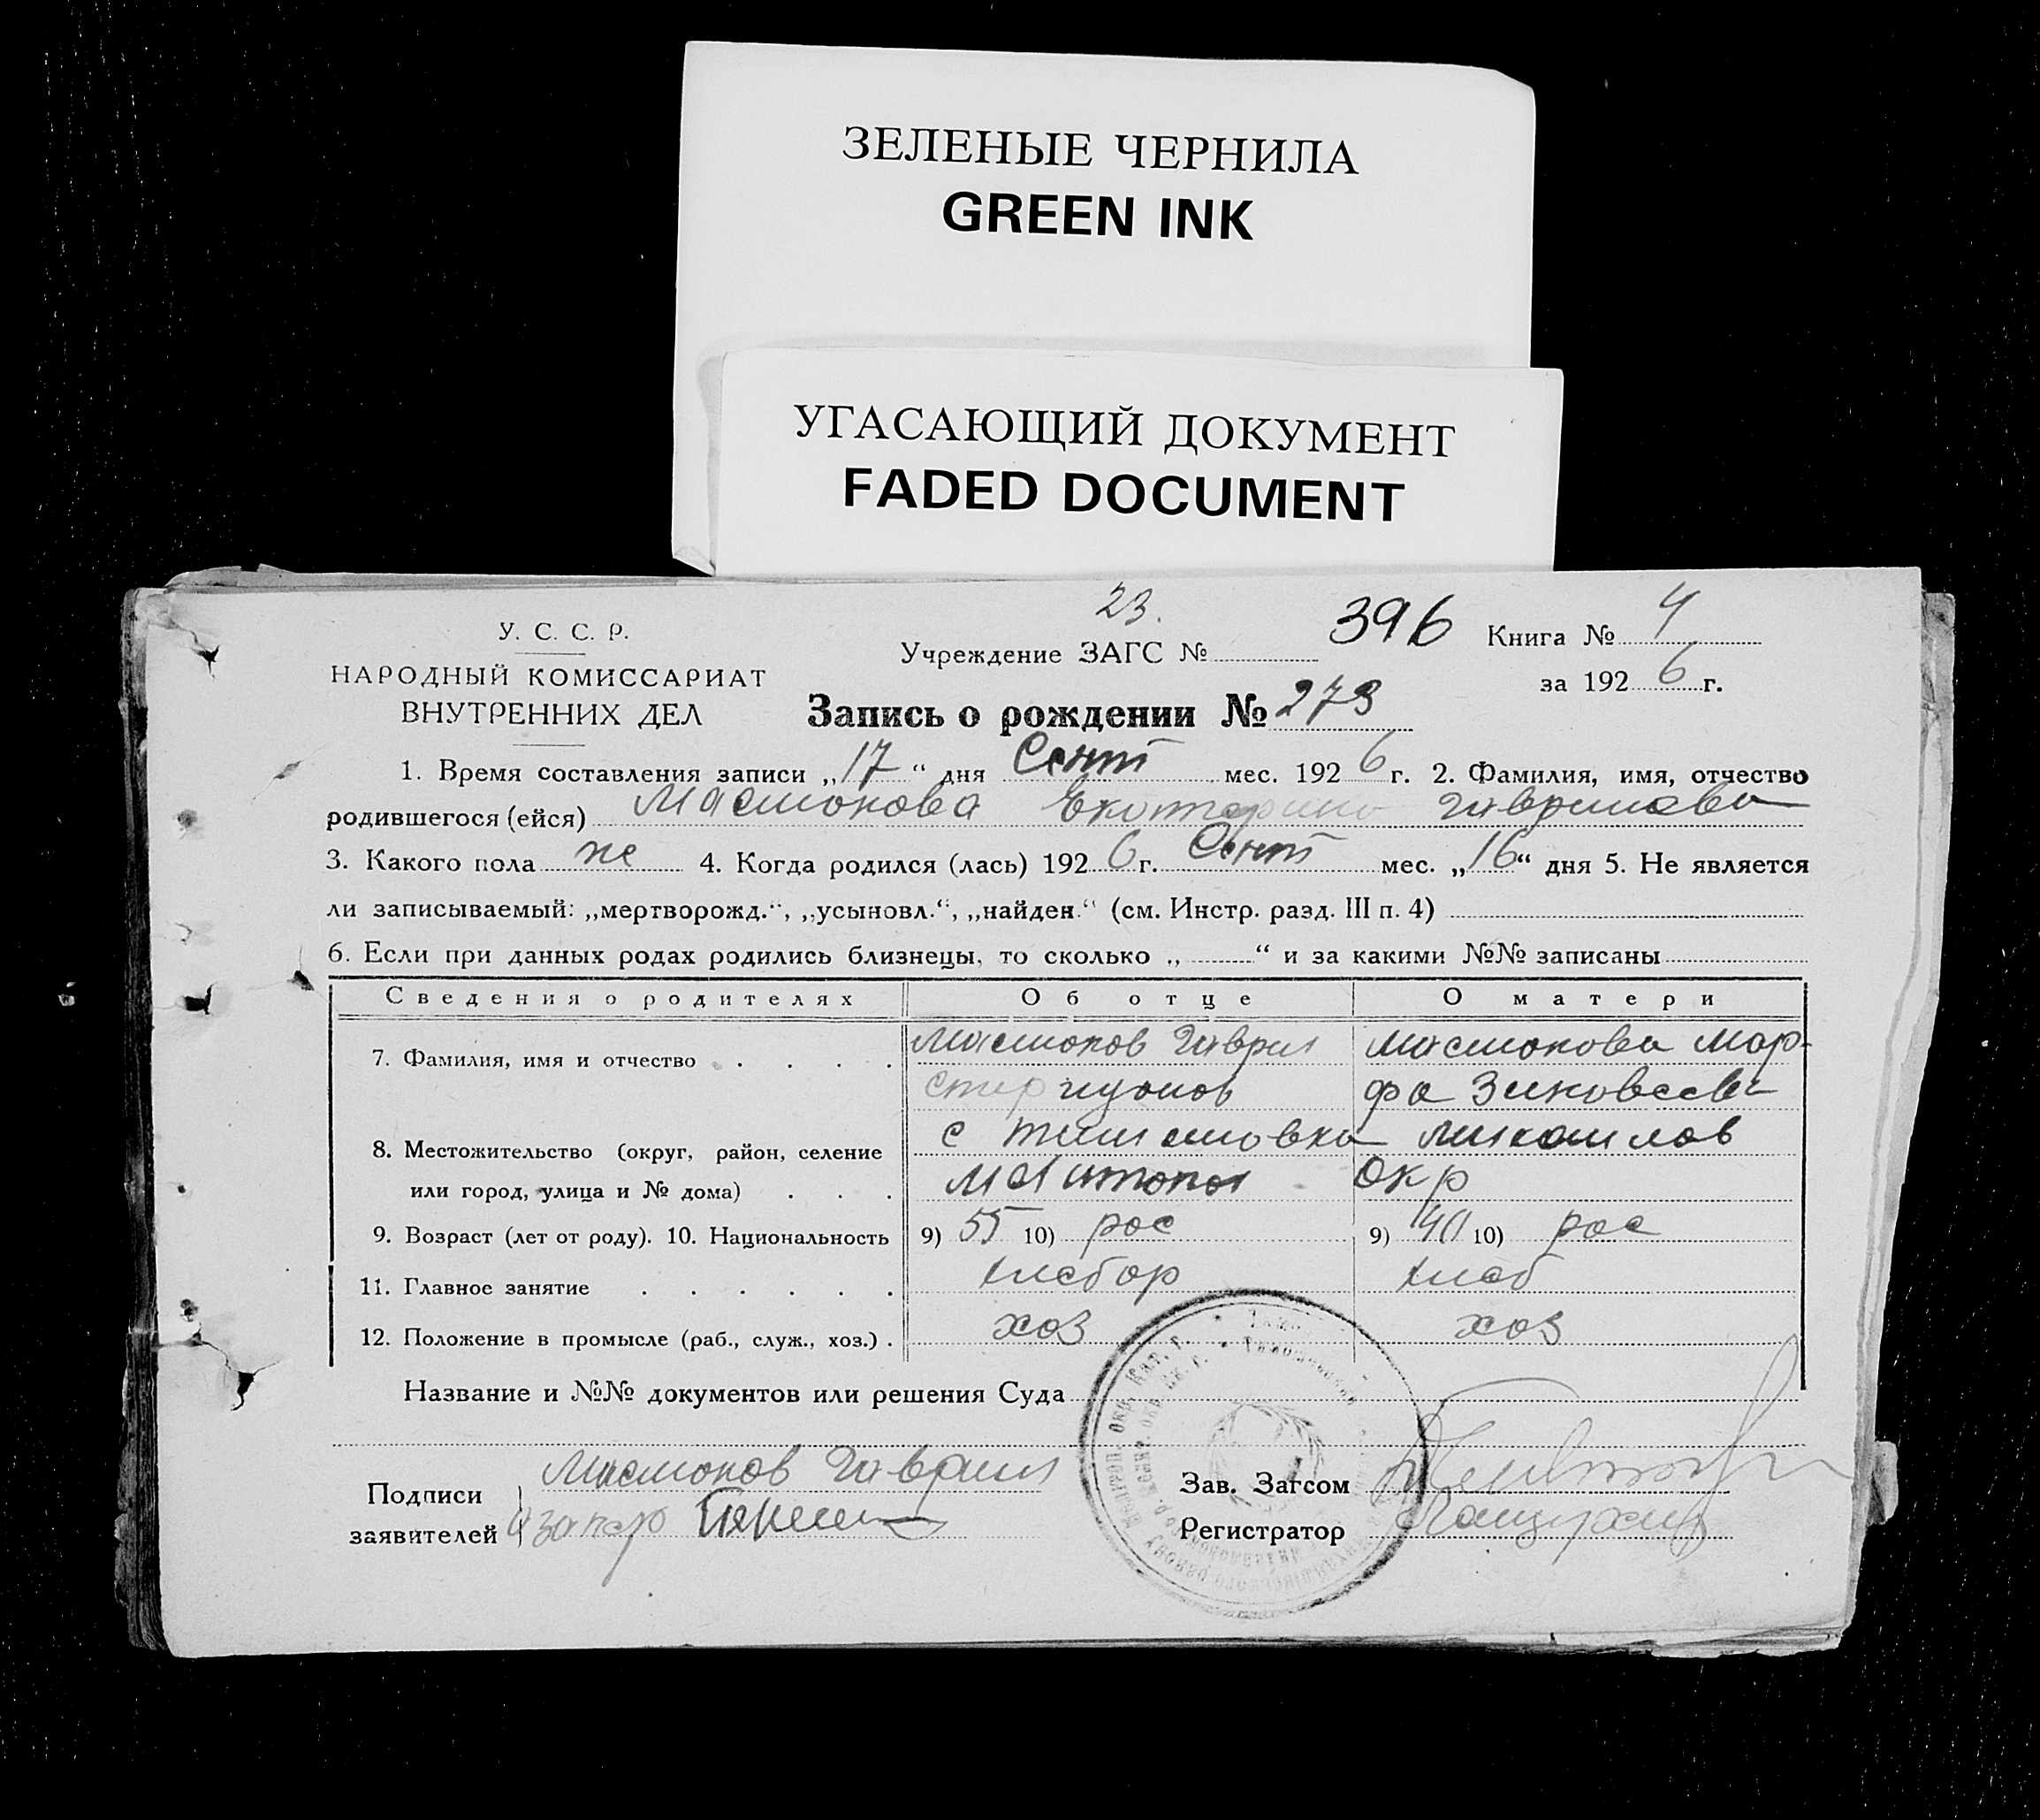 ЗЕЛЕНЫЕ ЧЕРНИЛА
GREEN INK
УГАСАЮЩИЙ ДОКУМЕНТ
FADED DOCUMENT
У. С. С. Р.
НАРОДНЫЙ КОМИССАРИАТ
ВНУТРЕННИХ ДЕЛ
23.
Учреждение ЗАГС № 396 Книга № 4
за 1926 г.
Запись о рождении № 273
1. Время составления записи „17“ дня Сент мес. 1926 г. 2. Фамилия, имя, отчество
родившегося (ейся) Маслюкова Екатерина
3. Какого пола же 4. Когда родился (лась) 1926 г. Сент мес. „16“ дня 5. Не является
ли записываемый: „мертворожд.“, „усыновл.“, „найден.“ (см. Инстр. разд. III п. 4)
6. Если при данных родах родились близнецы, то сколько „ “ и за какими №№ записаны
Сведения о родителях Об отце О матери
7. Фамилия, имя и отчество Гаврил Мар-
фа Зиновеева
8. Местожительство (округ, район, селение с
или город, улица и № дома) Окр
9. Возраст (лет от роду). 10. Национальность 9) 55 10) рос 9) 40 10) рос
11. Главное занятие хлебор хлеб
12. Положение в промысле (раб., служ., хоз.) хоз хоз
Название и №№ документов или решения Суда
Подписи Гаврил
заявителей
Зав. Загсом
Регистратор